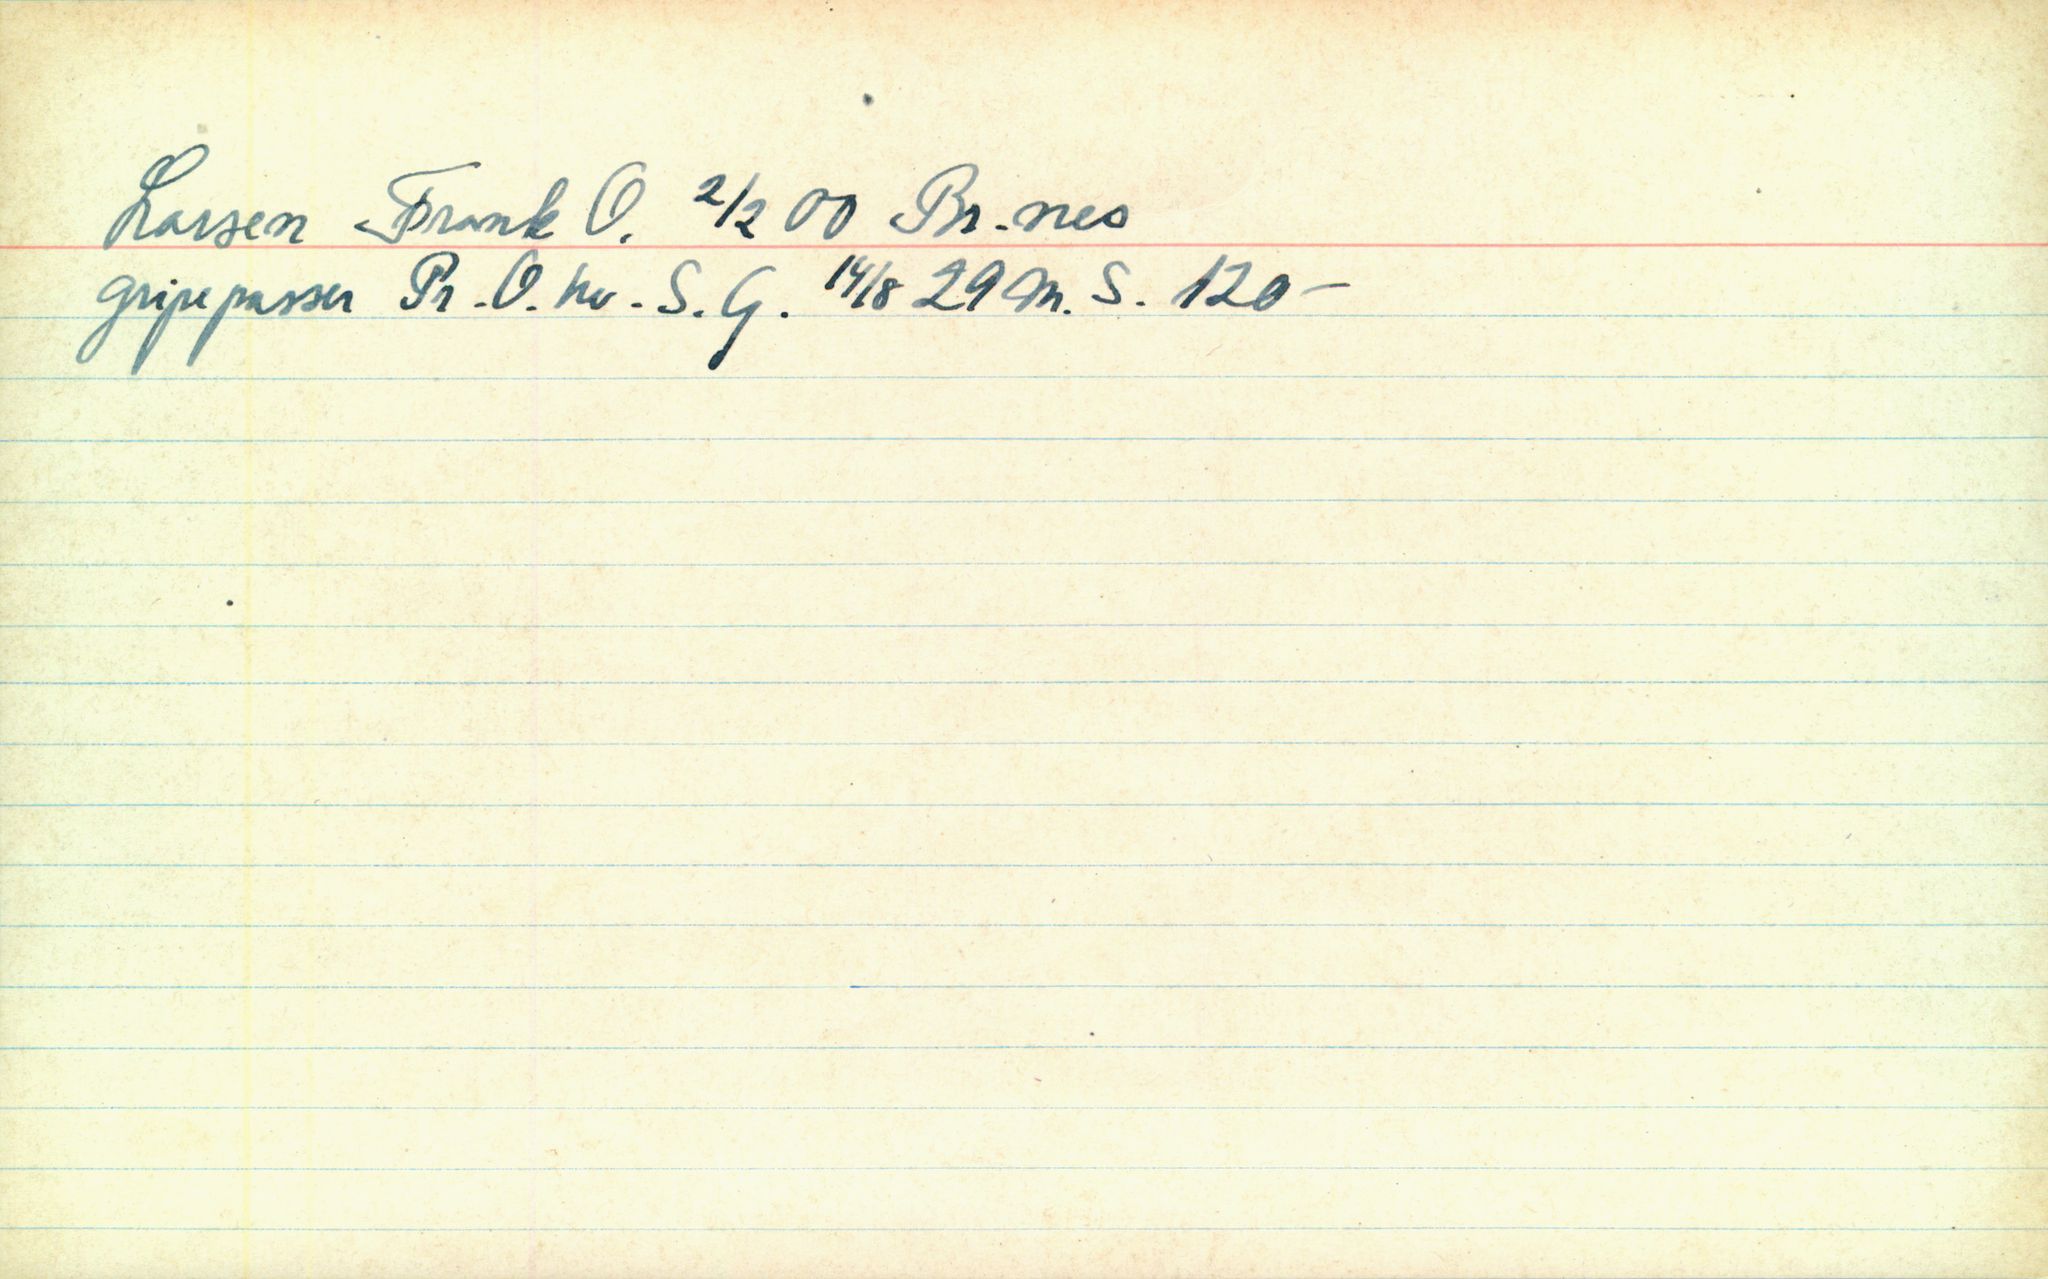 Larsen Frank O. 2/2 00 Br.nes
gripepasser Pr.O.hv.S.G. 14/8 29 M.S. 120-